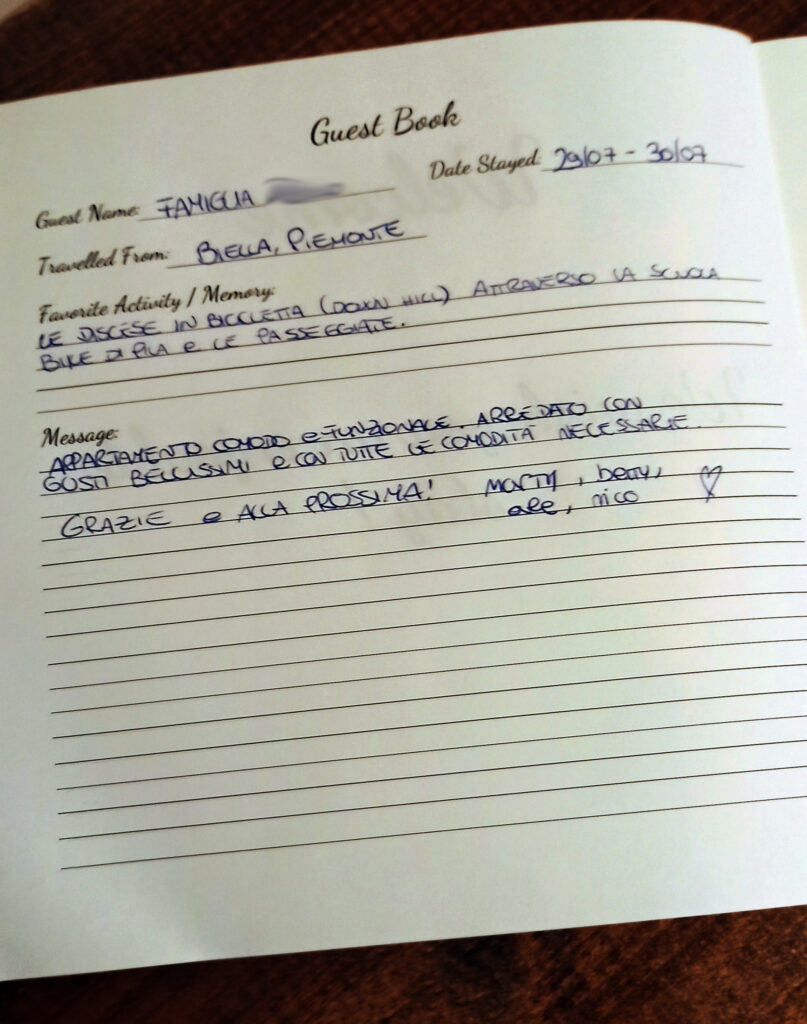 Guest Book
Date Stayed: 29/07 - 30/07
Guest Name: FAMIGLIA
Travelled From: BIELLA, PIEMONTE
Favorite Activity / Memory:
LE DISCESE IN BICICLETTA (DOWN HILL) ATTRAVERSO LA SCUOLA
BIKE DI PILA e LE PASSEGGIATE.
Message:
APPARTAMENTO COMODO e FUNZIONALE. ARREDATO CON
GUSTI BELLISSIMI e CON TUTTE LE COMODITÀ NECESSARIE.
GRAZIE e ALLA PROSSIMA! Marty, betty,
ale, nico